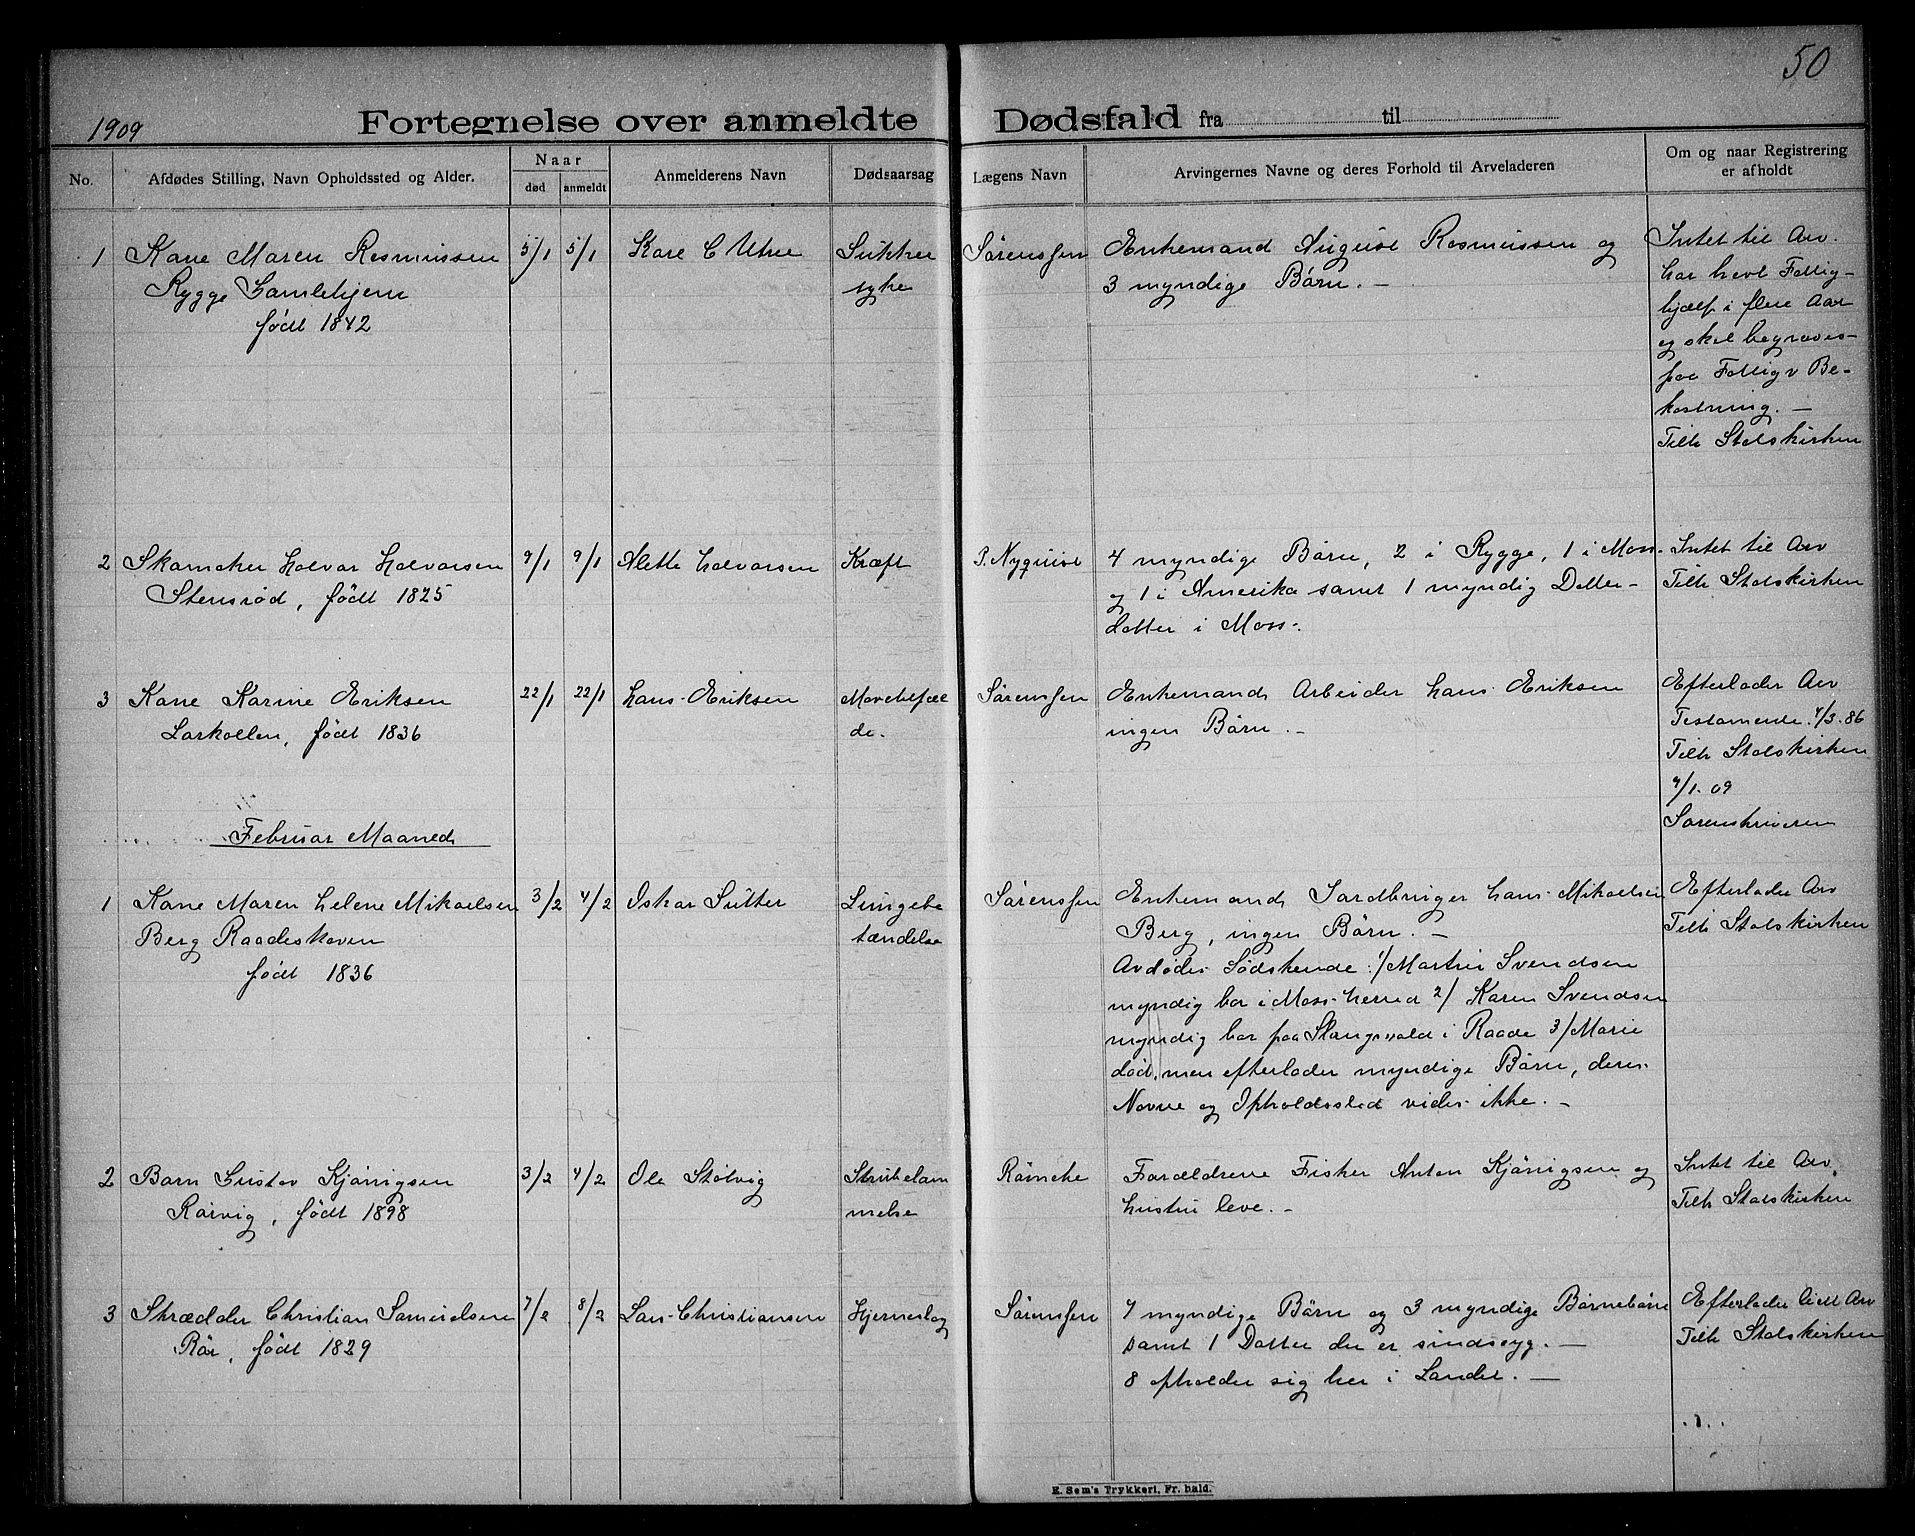 50
1909 Fortegnelse over anmeldte Dødsfald fra til
No.
Afdødes Stilling, Navn Opholdssted og Alder.
Naar
død anmeldt
Anmelderens Navn
Dødsaarsag
Lægens Navn
Arvingernes Navne og deres Forhold til Arveladeren
Om og naar Registrering
er afholdt
1 Kone Maren Rasmussen 5/1 5/1 Kare C Utne Sukker Sørenssen Enkemand August Rasmussen og Intet til Arv.
Rygge Gamlehjem syke 3 myndige Børn. — har havt Fattig-
født 1842 hjælp i flere Aar
og skal begraves
paa Fattigv Be-
kostning. —
Tilh Statskirken
2 Skomaker Halvor Halvorsen 9/1 9/1 Alette Halvorsen Kræft P. Nyquist 4 myndige Børn, 2 i Rygge, 1 i Moss Intet til Arv
Stensrød, født 1825 og 1 i Amerika samt 1 myndig Datter- Tilh Statskirken
datter i Moss.
3 Kone Karine Eriksen 22/1 22/1 Hans Eriksen Mavebefæn Sørenssen Enkemand Arbeider Hans Eriksen Efterlader Arv
Larkollen, født 1836 de. ingen Børn. — Testamente. 4/3. 86
Tilh Statskirken
9/1. 09
Sorenskriveren
Februar Maaned
1 Kone Maren Helene Mikaelsen 3/2 4/2 Oskar Sutter Lungebe Sørenssen Enkemand Jordbruger Hans Mikaelsen Efterlader Arv
Berg Raadeskoven tændelse Berg, ingen Børn. — Tilh Statskirken
født 1836 Avdødes Sødskende: 1/ Martin Svendsen
myndig bor i Moss herred 2/ Karen Svendsen
myndig bor paa Slangsvold i Raade 3/ Marie
død, men efterlader myndige Børn, deres
Navne og Opholdssted vides ikke. —
2 Barn Gustav Kjønigsen 3/2 4/2 Ole Støtvig Strubelam Rømcke Forældrene Fisker Anton Kjønigsen og Intet til Arv.
Rørvig, født 1898 melse hustru leve. — Tilh Statskirken
3 Skrædder Christian Samuelsen 7/2 8/2 Lars Christiansen Hjerneslag Sørenssen 7 myndige Børn og 3 myndige Børnebørn Efterlader lidt Arv
Rør, født 1829 samt 1 Datter der er sindssyg. — Tilh Statskirken
8 opholder sig her i Landet. —
E. Sem's Trykkeri, Fr. hald.